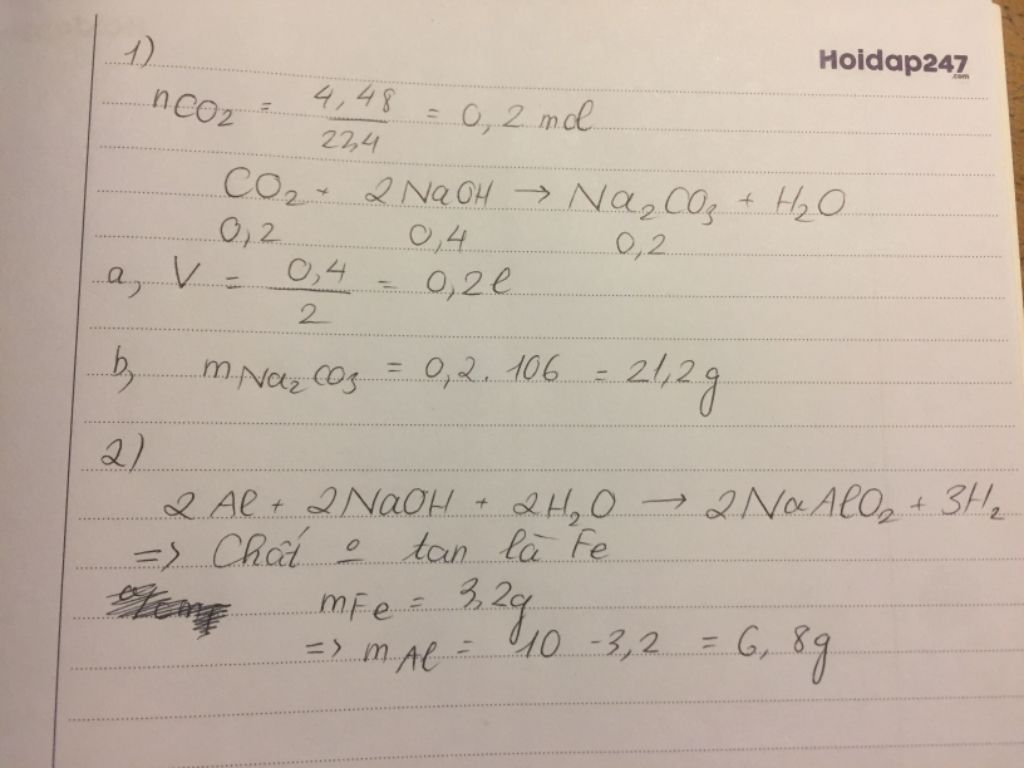 1)
Hoidap247
.com
nCO₂ = 4,48/22,4 = 0,2 mol
CO₂ + 2NaOH → Na₂CO₃ + H₂O
0,2 0,4 0,2
a, V = 0,4/2 = 0,2l
b, mNa₂CO₃ = 0,2.106 = 21,2g
2)
2Al + 2NaOH + 2H₂O → 2NaAlO₂ + 3H₂
=> Chất o tan là Fe
mFe = 3,2g
=> mAl = 10 - 3,2 = 6,8g